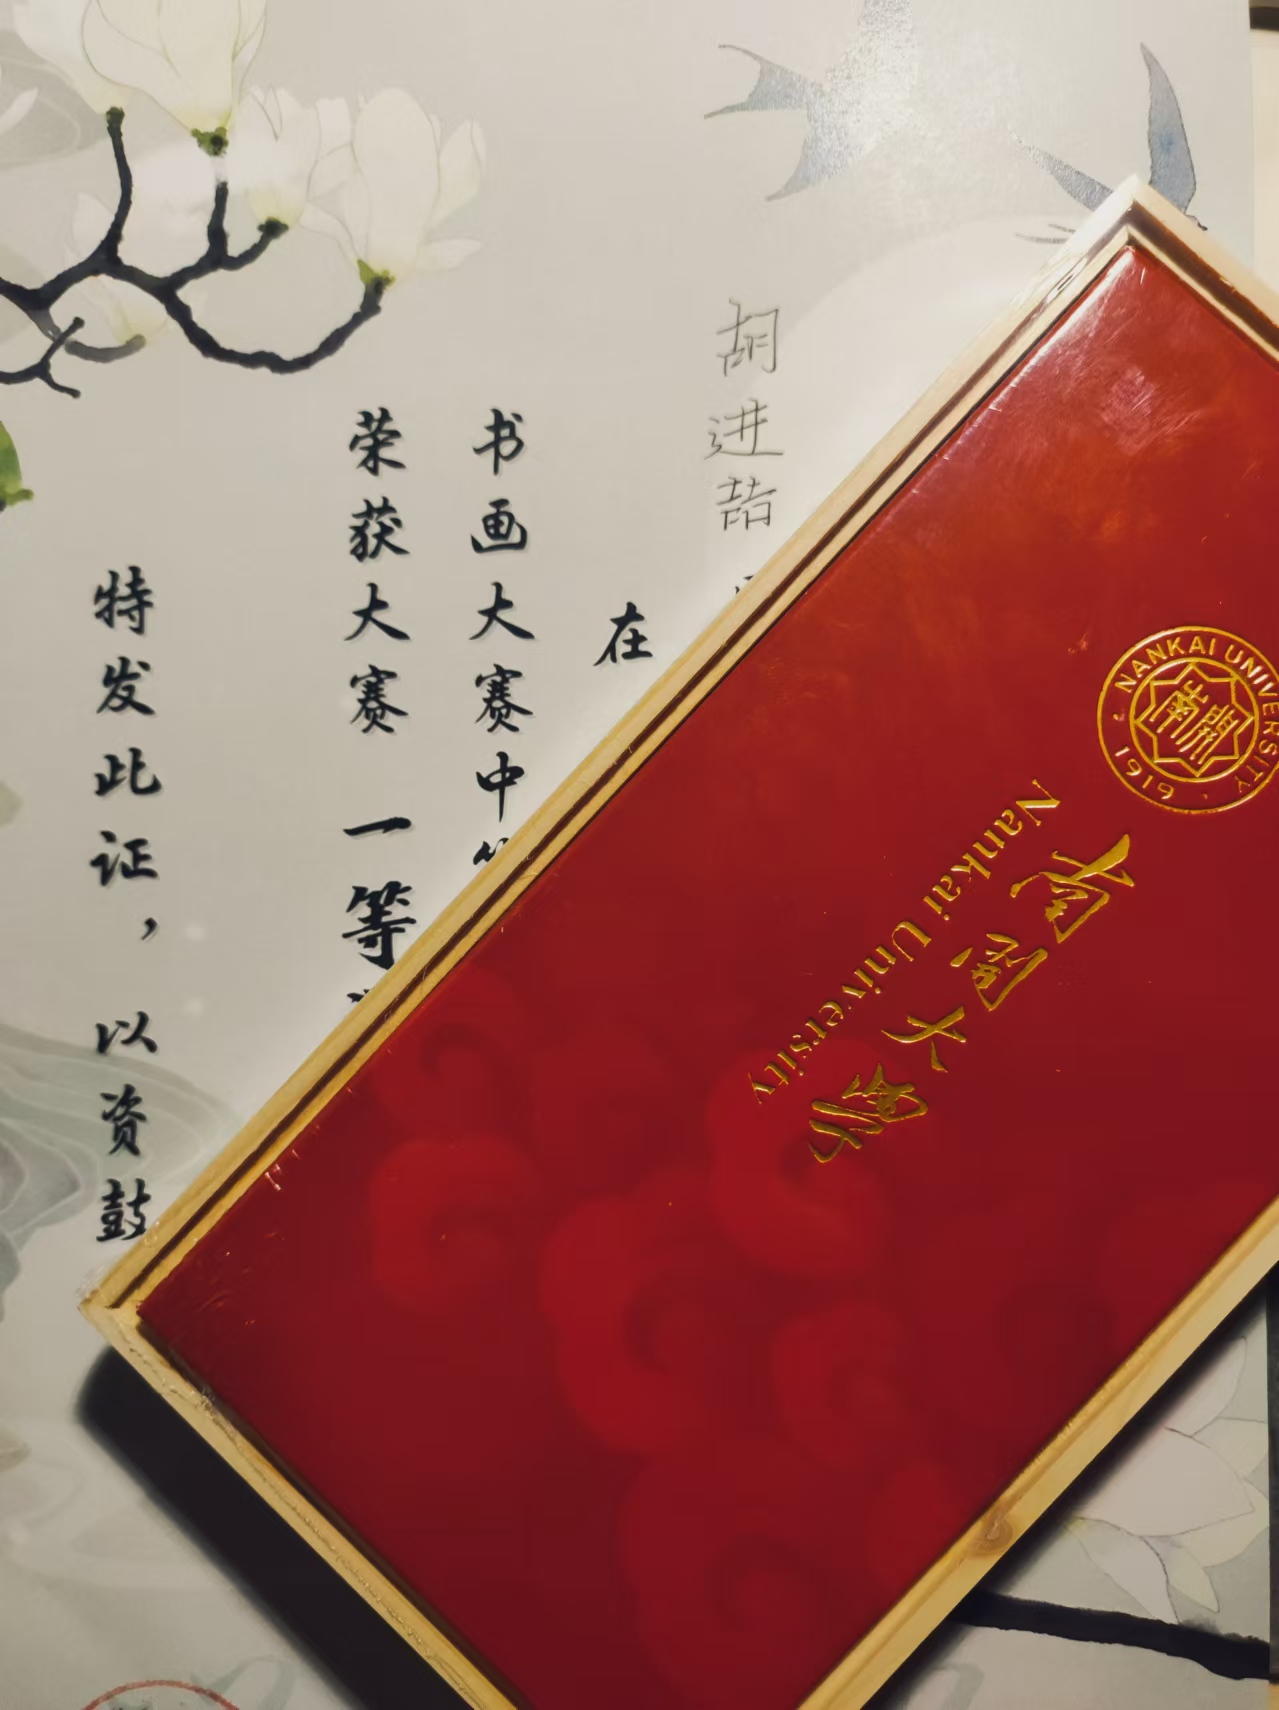 胡进喆
在
书画大赛中
荣获大赛 一等
特发此证，以资鼓
NANKAI UNIVERSITY
南開
1919
南开大学
Nankai University